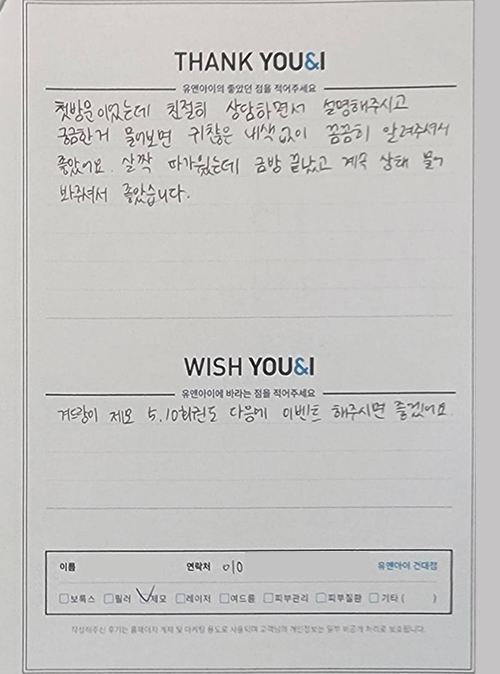 THANK YOU&I
유앤아이의 좋았던 점을 적어주세요
첫방문이었는데 친절히 상담하면서 설명해주시고
궁금한거 물어보면 귀찮은 내색없이 꼼꼼히 알려주셔서
좋았어요. 살짝 따가웠는데 금방 끝났고 계속 상태 물어
봐주셔서 좋았습니다.
WISH YOU&I
유앤아이에 바라는 점을 적어주세요
겨드랑이 제모 5, 10회권도 다음에 이벤트 해주시면 좋겠어요.
이름 연락처 010 유앤아이 건대점
보톡스 필러 제모 레이저 여드름 피부관리 피부질환 기타 ( )
작성해주신 후기는 홈페이지 게재 및 마케팅 용도로 사용되며 고객님의 개인정보는 일부 비공개 처리로 보호됩니다.